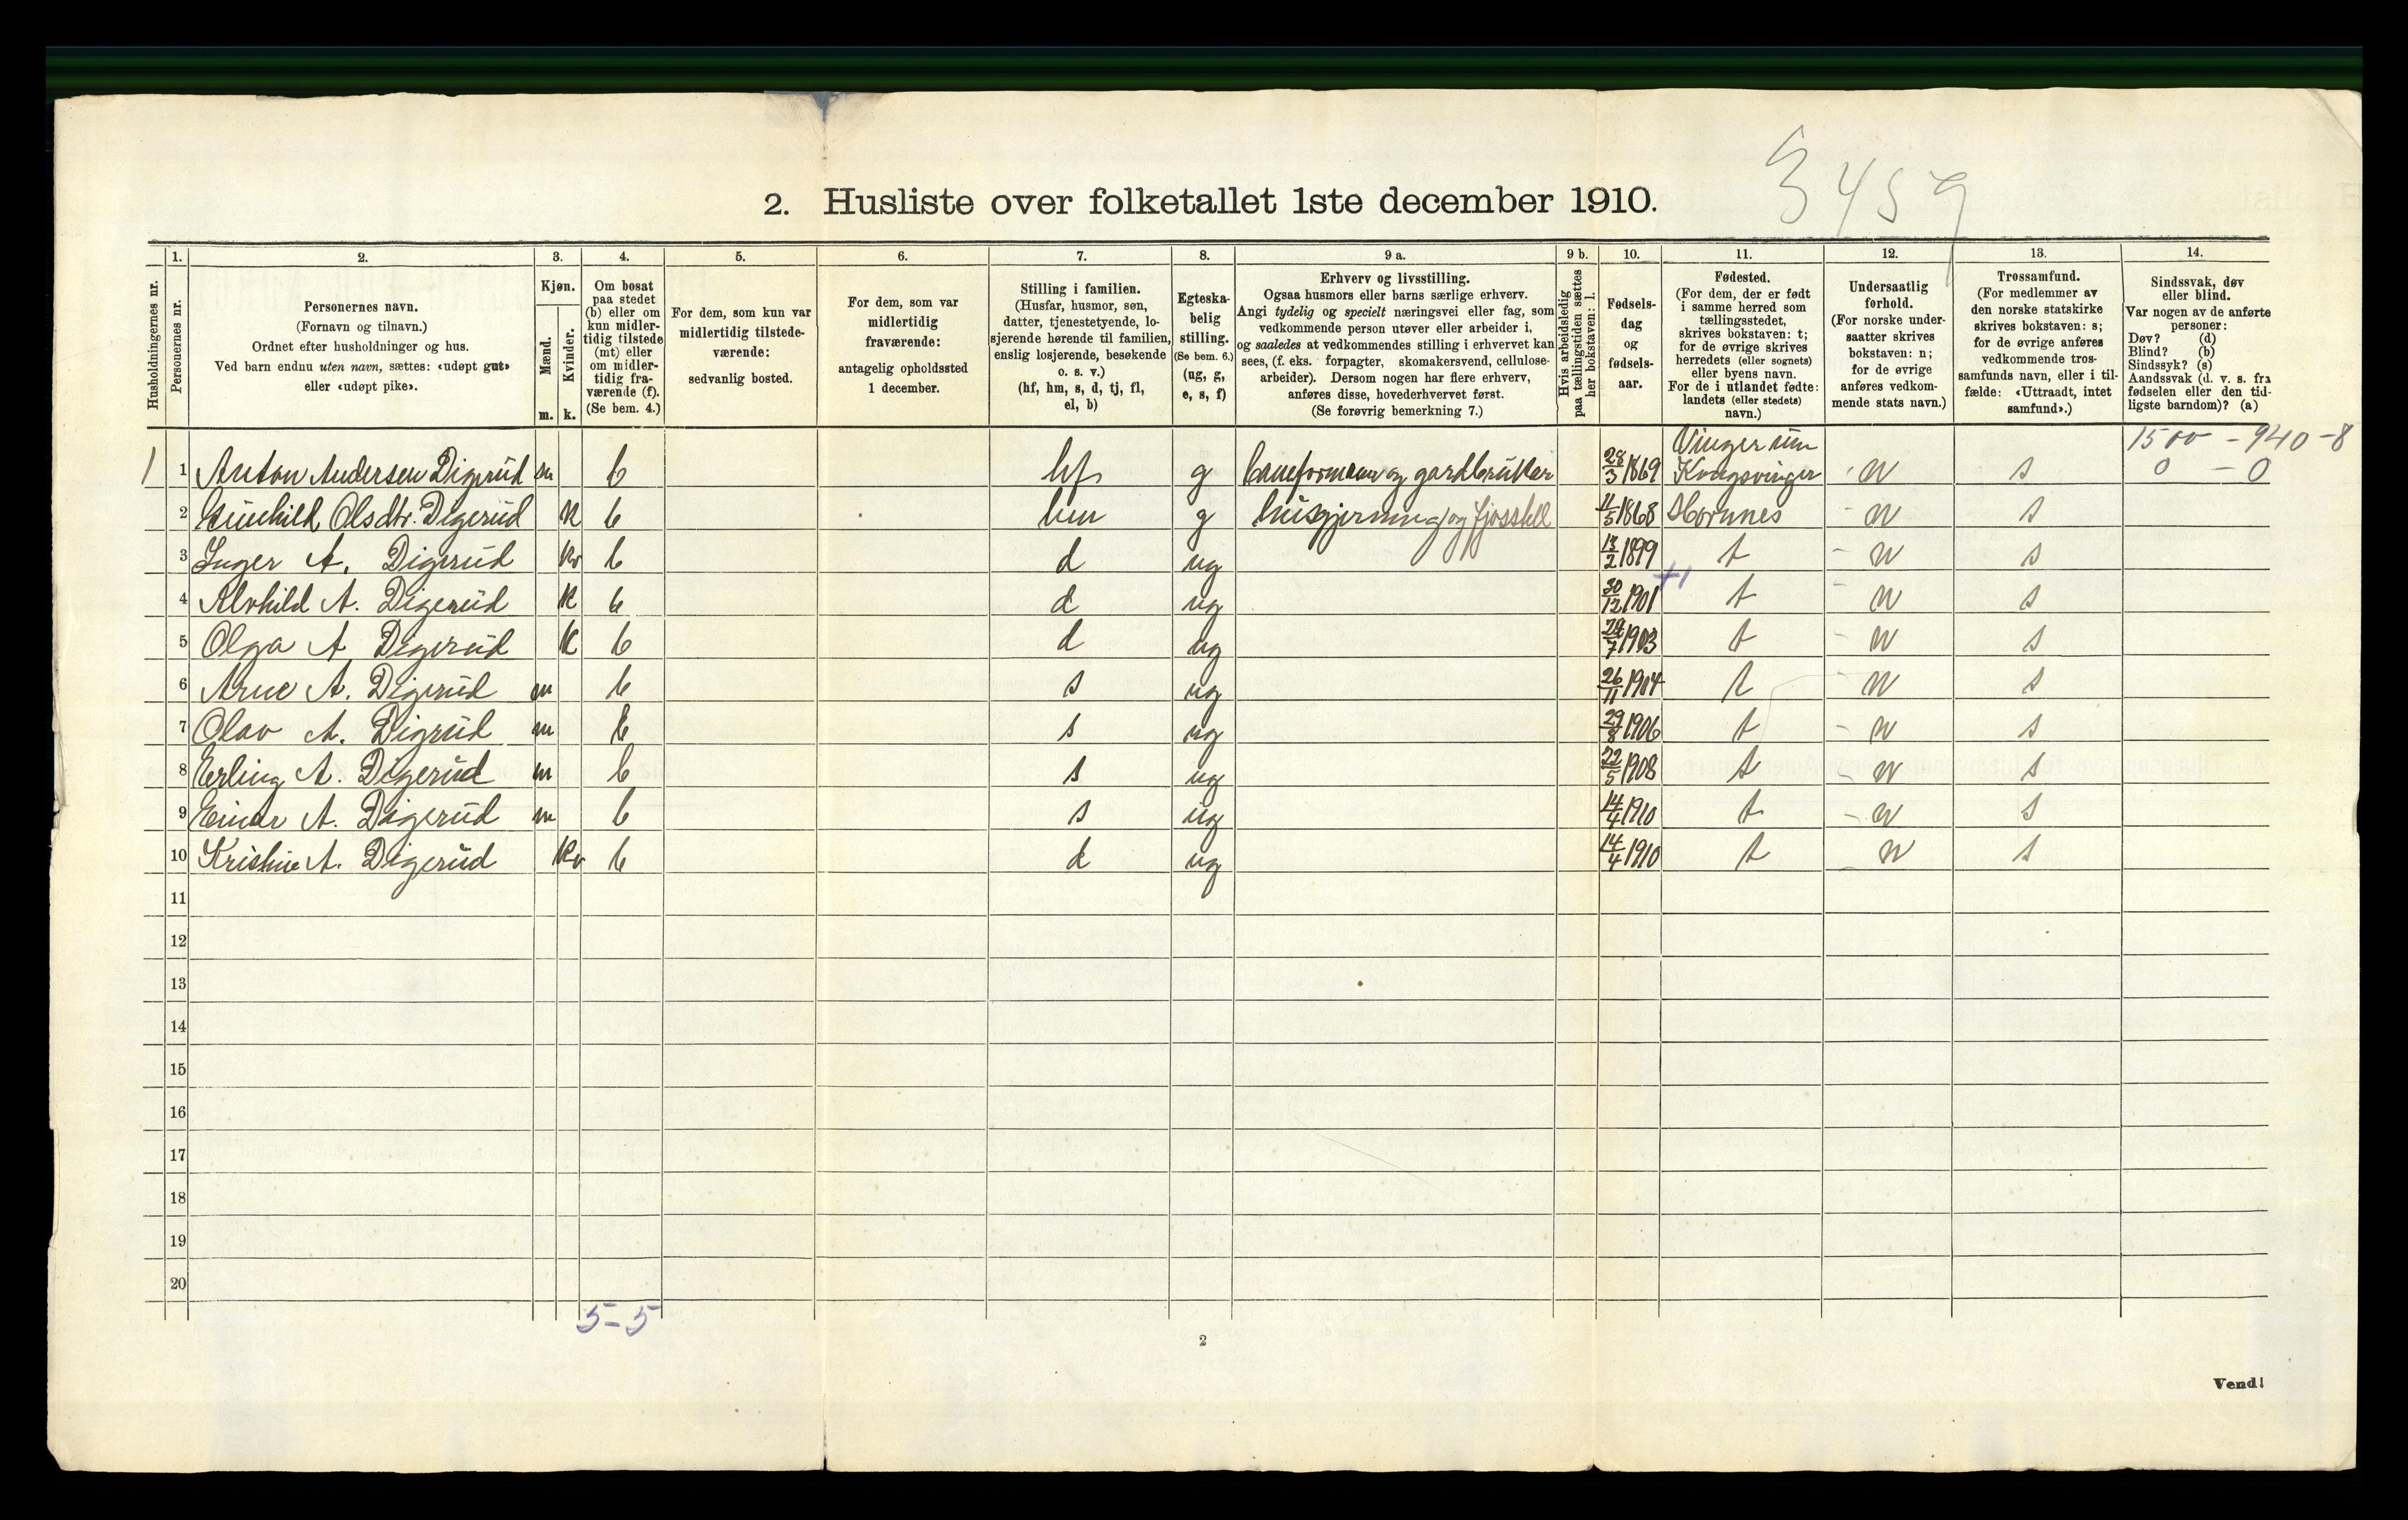 3459
2. Husliste over folketallet 1ste december 1910.
Husholdningernes nr.
1. Personernes nr.
2. Personernes navn.
(Fornavn og tilnavn.)
Ordnet efter husholdninger og hus.
Ved barn endnu uten navn, sættes: «udøpt gut»
eller «udøpt pike».
3. Kjøn.
Mænd. m.
Kvinder. k.
4. Om bosat
paa stedet
(b) eller om
kun midler-
tidig tilstede
(mt) eller
om midler-
tidig fra-
værende (f).
(Se bem. 4.)
5. For dem, som kun var
midlertidig tilstede-
værende:
sedvanlig bosted.
6. For dem, som var
midlertidig
fraværende:
antagelig opholdssted
1 december.
7. Stilling i familien.
(Husfar, husmor, søn,
datter, tjenestetyende, lo-
sjerende hørende til familien,
enslig losjerende, besøkende
o. s. v.)
(hf, hm, s, d, tj, fl,
el, b)
8. Egteska-
belig
stilling.
(Se bem. 6.)
(ug, g,
e, s, f)
9 a. Erhverv og livsstilling.
Ogsaa husmors eller barns særlige erhverv.
Angi tydelig og specielt næringsvei eller fag, som
vedkommende person utøver eller arbeider i,
og saaledes at vedkommendes stilling i erhvervet kan
sees, (f. eks. forpagter, skomakersvend, cellulose-
arbeider). Dersom nogen har flere erhverv,
anføres disse, hovederhvervet først.
(Se forøvrig bemerkning 7.)
9 b. Hvis arbeidsledig
paa tællingstiden sættes
her bokstaven: l.
10. Fødsels-
dag
og
fødsels-
aar.
11. Fødested.
(For dem, der er født
i samme herred som
tællingsstedet,
skrives bokstaven: t;
for de øvrige skrives
herredets (eller sognets)
eller byens navn.
For de i utlandet fødte:
landets (eller stedets)
navn.)
12. Undersaatlig
forhold.
(For norske under-
saatter skrives
bokstaven: n;
for de øvrige
anføres vedkom-
mende stats navn.)
13. Trossamfund.
(For medlemmer av
den norske statskirke
skrives bokstaven: s;
for de øvrige anføres
vedkommende tros-
samfunds navn, eller i til-
fælde: «Uttraadt, intet
samfund».)
14. Sindssvak, døv
eller blind.
Var nogen av de anførte
personer:
Døv? (d)
Blind? (b)
Sindssyk? (s)
Aandssvak (d. v. s. fra
fødselen eller den tid-
ligste barndom)? (a)
Vinger 1500 - 940 - 8
1 1 Anton Andersen Digerud m b hf g baneformann og gardbruker 28/3 1869 Kongsvinger n s 0 - 0
2 Gunhild Olsdtr. Digerud k b hm g husgjerning og fjosstell 11/5 1868 Hornnes n s
3 Inger A. Digerud kv b d ug 13/2 1899 t n s
4 Alvhild A. Digerud k b d ug 30/12 1901 t n s
5 Olga A Digerud k b d ug 24/7 1903 t n s
6 Arne A. Digerud m b s ug 26/11 1904 t n s
7 Olav A. Digrud m b s ug 29/8 1906 t n s
8 Erling A. Digerud m b s ug 22/5 1908 t n s
9 Einar A. Digerud m b s ug 14/4 1910 t n s
10 Kristine A. Digerud kv b d ug 14/4 1910 t n s
11
12
13
14
15
16
17
18
19
20
5-5
2
Vend!